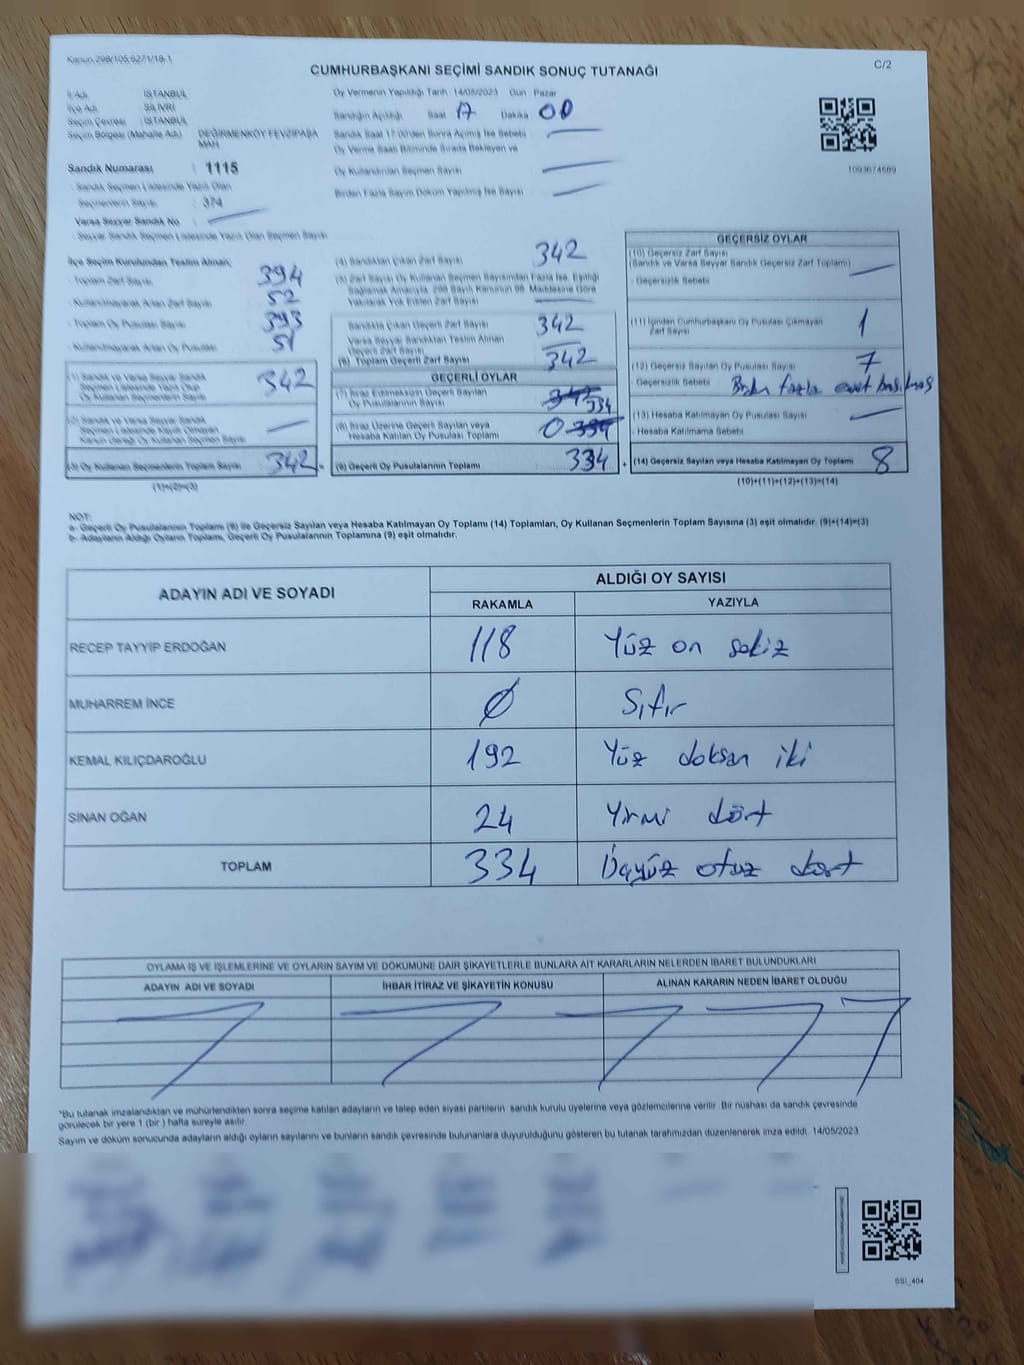 Kanun:298/105;6271/18-1
C/2
CUMHURBAŞKANI SEÇİMİ SANDIK SONUÇ TUTANAĞI
İl Adı : İSTANBUL
İlçe Adı : SİLİVRİ
Seçim Çevresi : İSTANBUL
Seçim Bölgesi (Mahalle Adı) : DEĞİRMENKÖY FEVZİPAŞA MAH.
Sandık Numarası : 1115
- Sandık Seçmen Listesinde Yazılı Olan
Seçmenlerin Sayısı : 374
Varsa Seyyar Sandık No :
- Seyyar Sandık Seçmen Listesinde Yazılı Olan Seçmen Sayısı
Oy Vermenin Yapıldığı Tarih 14/05/2023 Gün Pazar
Sandığın Açıldığı Saat 17 Dakika 00
Sandık Saat 17:00'den Sonra Açılmış İse Sebebi
Oy Verme Saati Bitiminde Sırada Bekleyen ve
Oy Kullandırılan Seçmen Sayısı
Birden Fazla Sayım Döküm Yapılmış İse Sayısı
1093674589
İlçe Seçim Kurulundan Teslim Alınan;
- Toplam Zarf Sayısı 394
- Kullanılmayarak Artan Zarf Sayısı 52
- Toplam Oy Pusulası Sayısı 393
- Kullanılmayarak Artan Oy Pusulası 51
(1) Sandık ve Varsa Seyyar Sandık
Seçmen Listesinde Yazılı Olup
Oy Kullanan Seçmenlerin Sayısı 342
(2) Sandık ve Varsa Seyyar Sandık
Seçmen Listesinde Kaydı Olmayan
Kanun Gereği Oy Kullanan Seçmen Sayısı
(3) Oy Kullanan Seçmenlerin Toplam Sayısı 342 =
(1)+(2)=(3)
(4) Sandıktan Çıkan Zarf Sayısı 342
(5) Zarf Sayısı Oy Kullanan Seçmen Sayısından Fazla İse, Eşitliği
Sağlamak Amacıyla, 298 Sayılı Kanunun 98. Maddesine Göre
Yakılarak Yok Edilen Zarf Sayısı
Sandıkta Çıkan Geçerli Zarf Sayısı 342
Varsa Seyyar Sandıktan Teslim Alınan
Geçerli Zarf Sayısı
(6) Toplam Geçerli Zarf Sayısı 342
GEÇERLİ OYLAR
(7) İtiraz Edilmeksizin Geçerli Sayılan
Oy Pusulalarının Sayısı 342 334
(8) İtiraz Üzerine Geçerli Sayılan veya
Hesaba Katılan Oy Pusulası Toplamı 0 334
(9) Geçerli Oy Pusulalarının Toplamı 334 +
GEÇERSİZ OYLAR
(10) Geçersiz Zarf Sayısı
(Sandık ve Varsa Seyyar Sandık Geçersiz Zarf Toplamı)
- Geçersizlik Sebebi
(11) İçinden Cumhurbaşkanı Oy Pusulası Çıkmayan
Zarf Sayısı 1
(12) Geçersiz Sayılan Oy Pusulası Sayısı 7
- Geçersizlik Sebebi fazla evet
(13) Hesaba Katılmayan Oy Pusulası Sayısı
- Hesaba Katılmama Sebebi
(14) Geçersiz Sayılan veya Hesaba Katılmayan Oy Toplamı 8
(10)+(11)+(12)+(13)=(14)
NOT:
a- Geçerli Oy Pusulalarının Toplamı (9) ile Geçersiz Sayılan veya Hesaba Katılmayan Oy Toplamı (14) Toplamları, Oy Kullanan Seçmenlerin Toplam Sayısına (3) eşit olmalıdır. (9)+(14)=(3)
b- Adayların Aldığı Oyların Toplamı, Geçerli Oy Pusulalarının Toplamına (9) eşit olmalıdır.
ADAYIN ADI VE SOYADI
ALDIĞI OY SAYISI
RAKAMLA YAZIYLA
RECEP TAYYİP ERDOĞAN 118 Yüz on sekiz
MUHARREM İNCE 0 Sıfır
KEMAL KILIÇDAROĞLU 192 Yüz doksan iki
SİNAN OĞAN 24 Yirmi dört
TOPLAM 334 Üçyüz otuz dört
OYLAMA İŞ VE İŞLEMLERİNE VE OYLARIN SAYIM VE DÖKÜMÜNE DAİR ŞİKAYETLERLE BUNLARA AİT KARARLARIN NELERDEN İBARET BULUNDUKLARI
ADAYIN ADI VE SOYADI İHBAR İTİRAZ VE ŞİKAYETİN KONUSU ALINAN KARARIN NEDEN İBARET OLDUĞU
*Bu tutanak imzalandıktan ve mühürlendikten sonra seçime katılan adayların ve talep eden siyasi partilerin sandık kurulu üyelerine veya gözlemcilerine verilir. Bir nüshası da sandık çevresinde
görülecek bir yere 1 (bir ) hafta süreyle asılır.
Sayım ve döküm sonucunda adayların aldığı oyların sayılarını ve bunların sandık çevresinde bulunanlara duyurulduğunu gösteren bu tutanak tarafımızdan düzenlenerek imza edildi. 14/05/2023
SSI_404